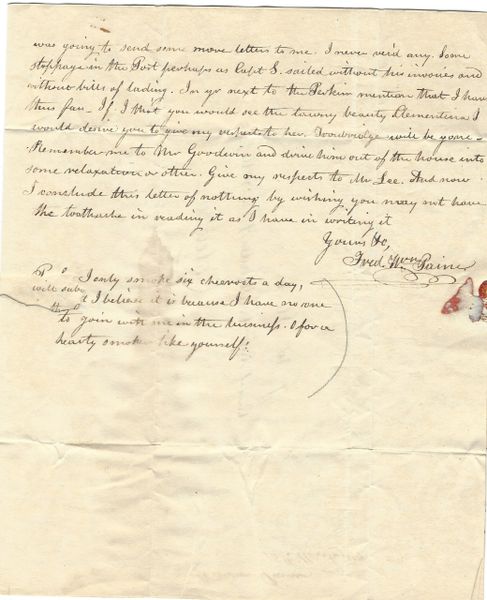 was going to send some more letters to me. I never rec'd any. Some
stoppage in the Port perhaps as Capt S. sailed without his invoices and
without bills of lading. In yr next to the Perkins mention that I have
thus far. If I tho't you would see the tawny beauty Clementina I
would desire you to give my respects to her. Woodbridge will be gone.
Remember me to Mr Goodwin and drive him out of the house into
some relaxation or other. Give my respects to Mr Lee. And now
I conclude this letter of nothing by wishing you may not have
the toothache in reading it as I have in writing it
Yours &c,
Fred. Wm Paine
I only smoke six cheeroots a day,
t I believe it is because I have no one
to join with me in the business. O for a
hearty smoker like yourself.